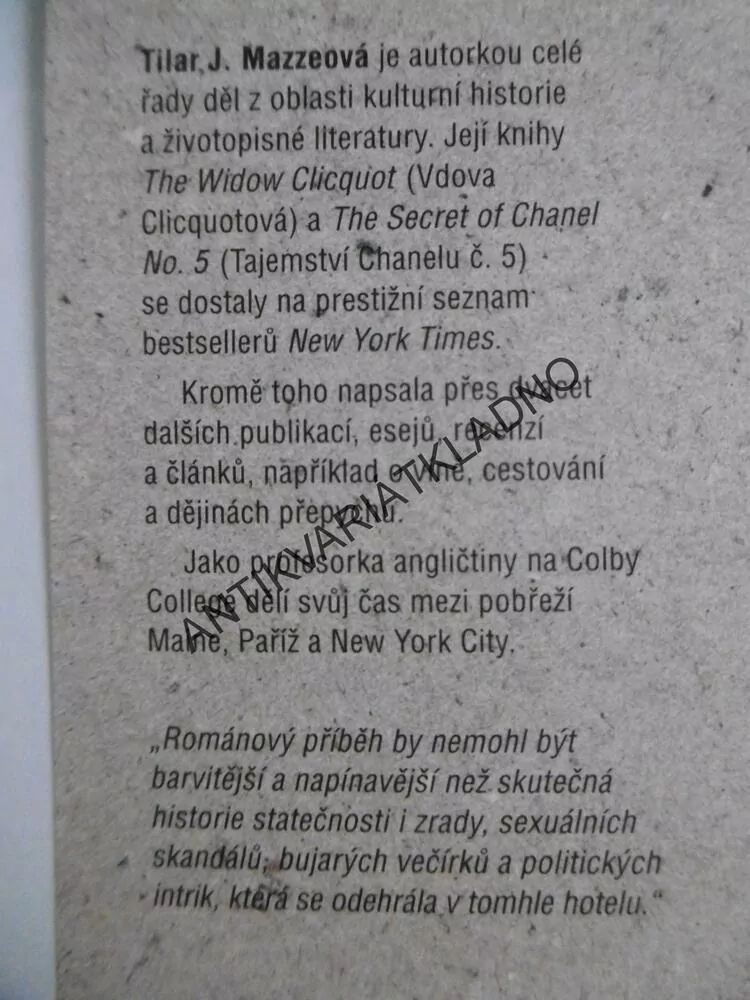 Tilar J. Mazzeová je autorkou celé
řady děl z oblasti kulturní historie
a životopisné literatury. Její knihy
The Widow Clicquot (Vdova
Clicquotová) a The Secret of Chanel
No. 5 (Tajemství Chanelu č. 5)
se dostaly na prestižní seznam
bestsellerů New York Times.
Kromě toho napsala přes dvacet
dalších publikací, esejů, recenzí
a článků, například o víně, cestování
a dějinách přepychu.
Jako profesorka angličtiny na Colby
College dělí svůj čas mezi pobřeží
Maine, Paříž a New York City.
„Románový příběh by nemohl být
barvitější a napínavější než skutečná
historie statečnosti i zrady, sexuálních
skandálů, bujarých večírků a politických
intrik, která se odehrála v tomhle hotelu.“
ANTIKVARIATKLADNO